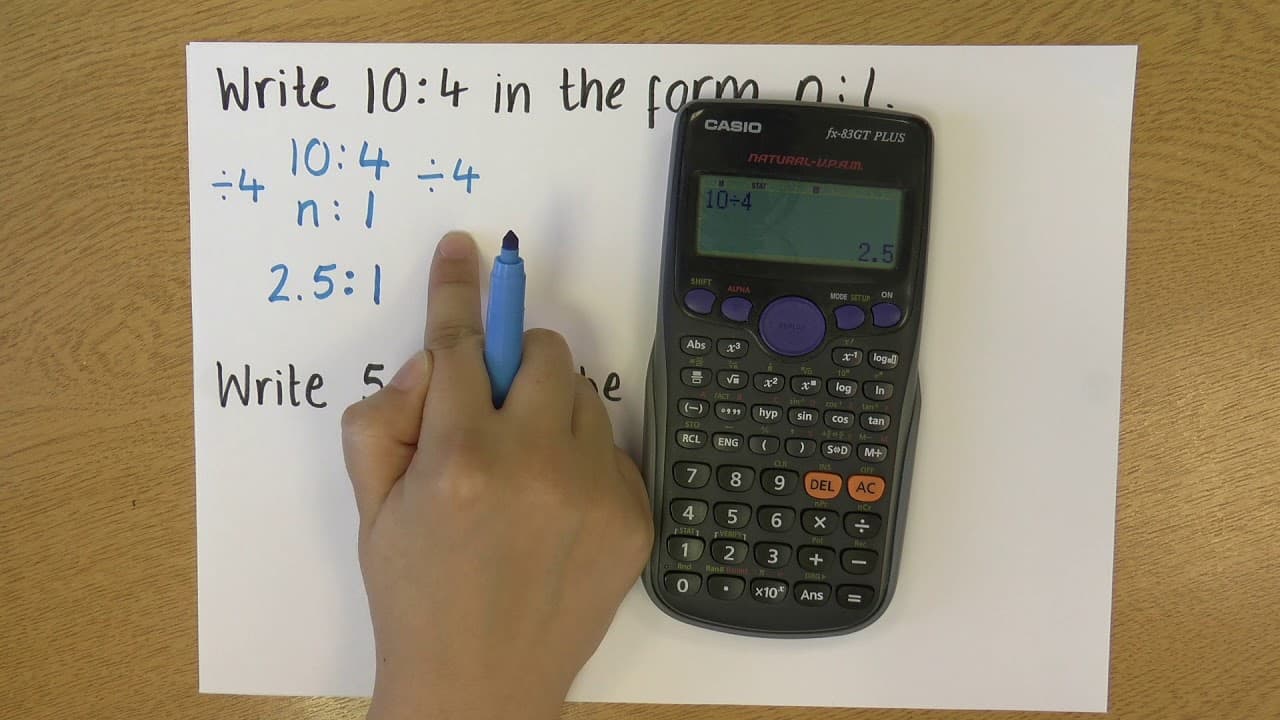 Write 10:4 in the form n:1.
10:4
÷4 ÷4
n:1
2.5:1
Write 5
CASIO fx-83GT PLUS
NATURAL-V.P.A.M.
10÷4
2.5
SHIFT ALPHA MODE SETUP ON
REPLAY
Abs x³ x⁻¹ log
√ x² log ln
(−) hyp sin cos tan
STO
RCL ENG ( ) S⇔D M+
CLR INS OFF
7 8 9 DEL AC
4 5 6 × ÷
1 2 3 + −
0 . ×10ˣ Ans =